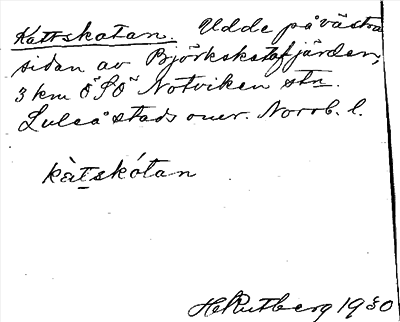 Kattskatan. Udde på västra
sidan av Björkskatafjärden,
3 km ÖSÖ Notviken stn.
Luleå stads omr. Norrb. l.
kàtskótan
H Rutberg 1930